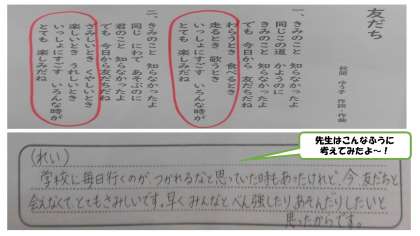 友だち
一、きみのこと 知らなかったよ
同じこの道 かようのに
きみのこと 知らなかったよ
でも 今日から 友だちだね
わらうとき 食べるとき
走るとき 歌うとき
いっしょにすごす いろんな時が
とても 楽しみだね
二、きみのこと 知らなかったよ
同じ にわで あそぶのに
君のこと 知らなかったよ
でも 今日から友だちだね
さみしいとき くやしいとき
楽しいとき うれしいとき
いっしょにすごす いろんな時が
とても 楽しみだね
先生はこんなふうに
考えてみたよ～！
(れい)
学校に毎日行くのが、つかれるなと思っていた時もあったけれど、今、友だちと
会えなくて、とてもさみしいです。早くみんなとべん強したりあそんだりしたいと
思ったからです。